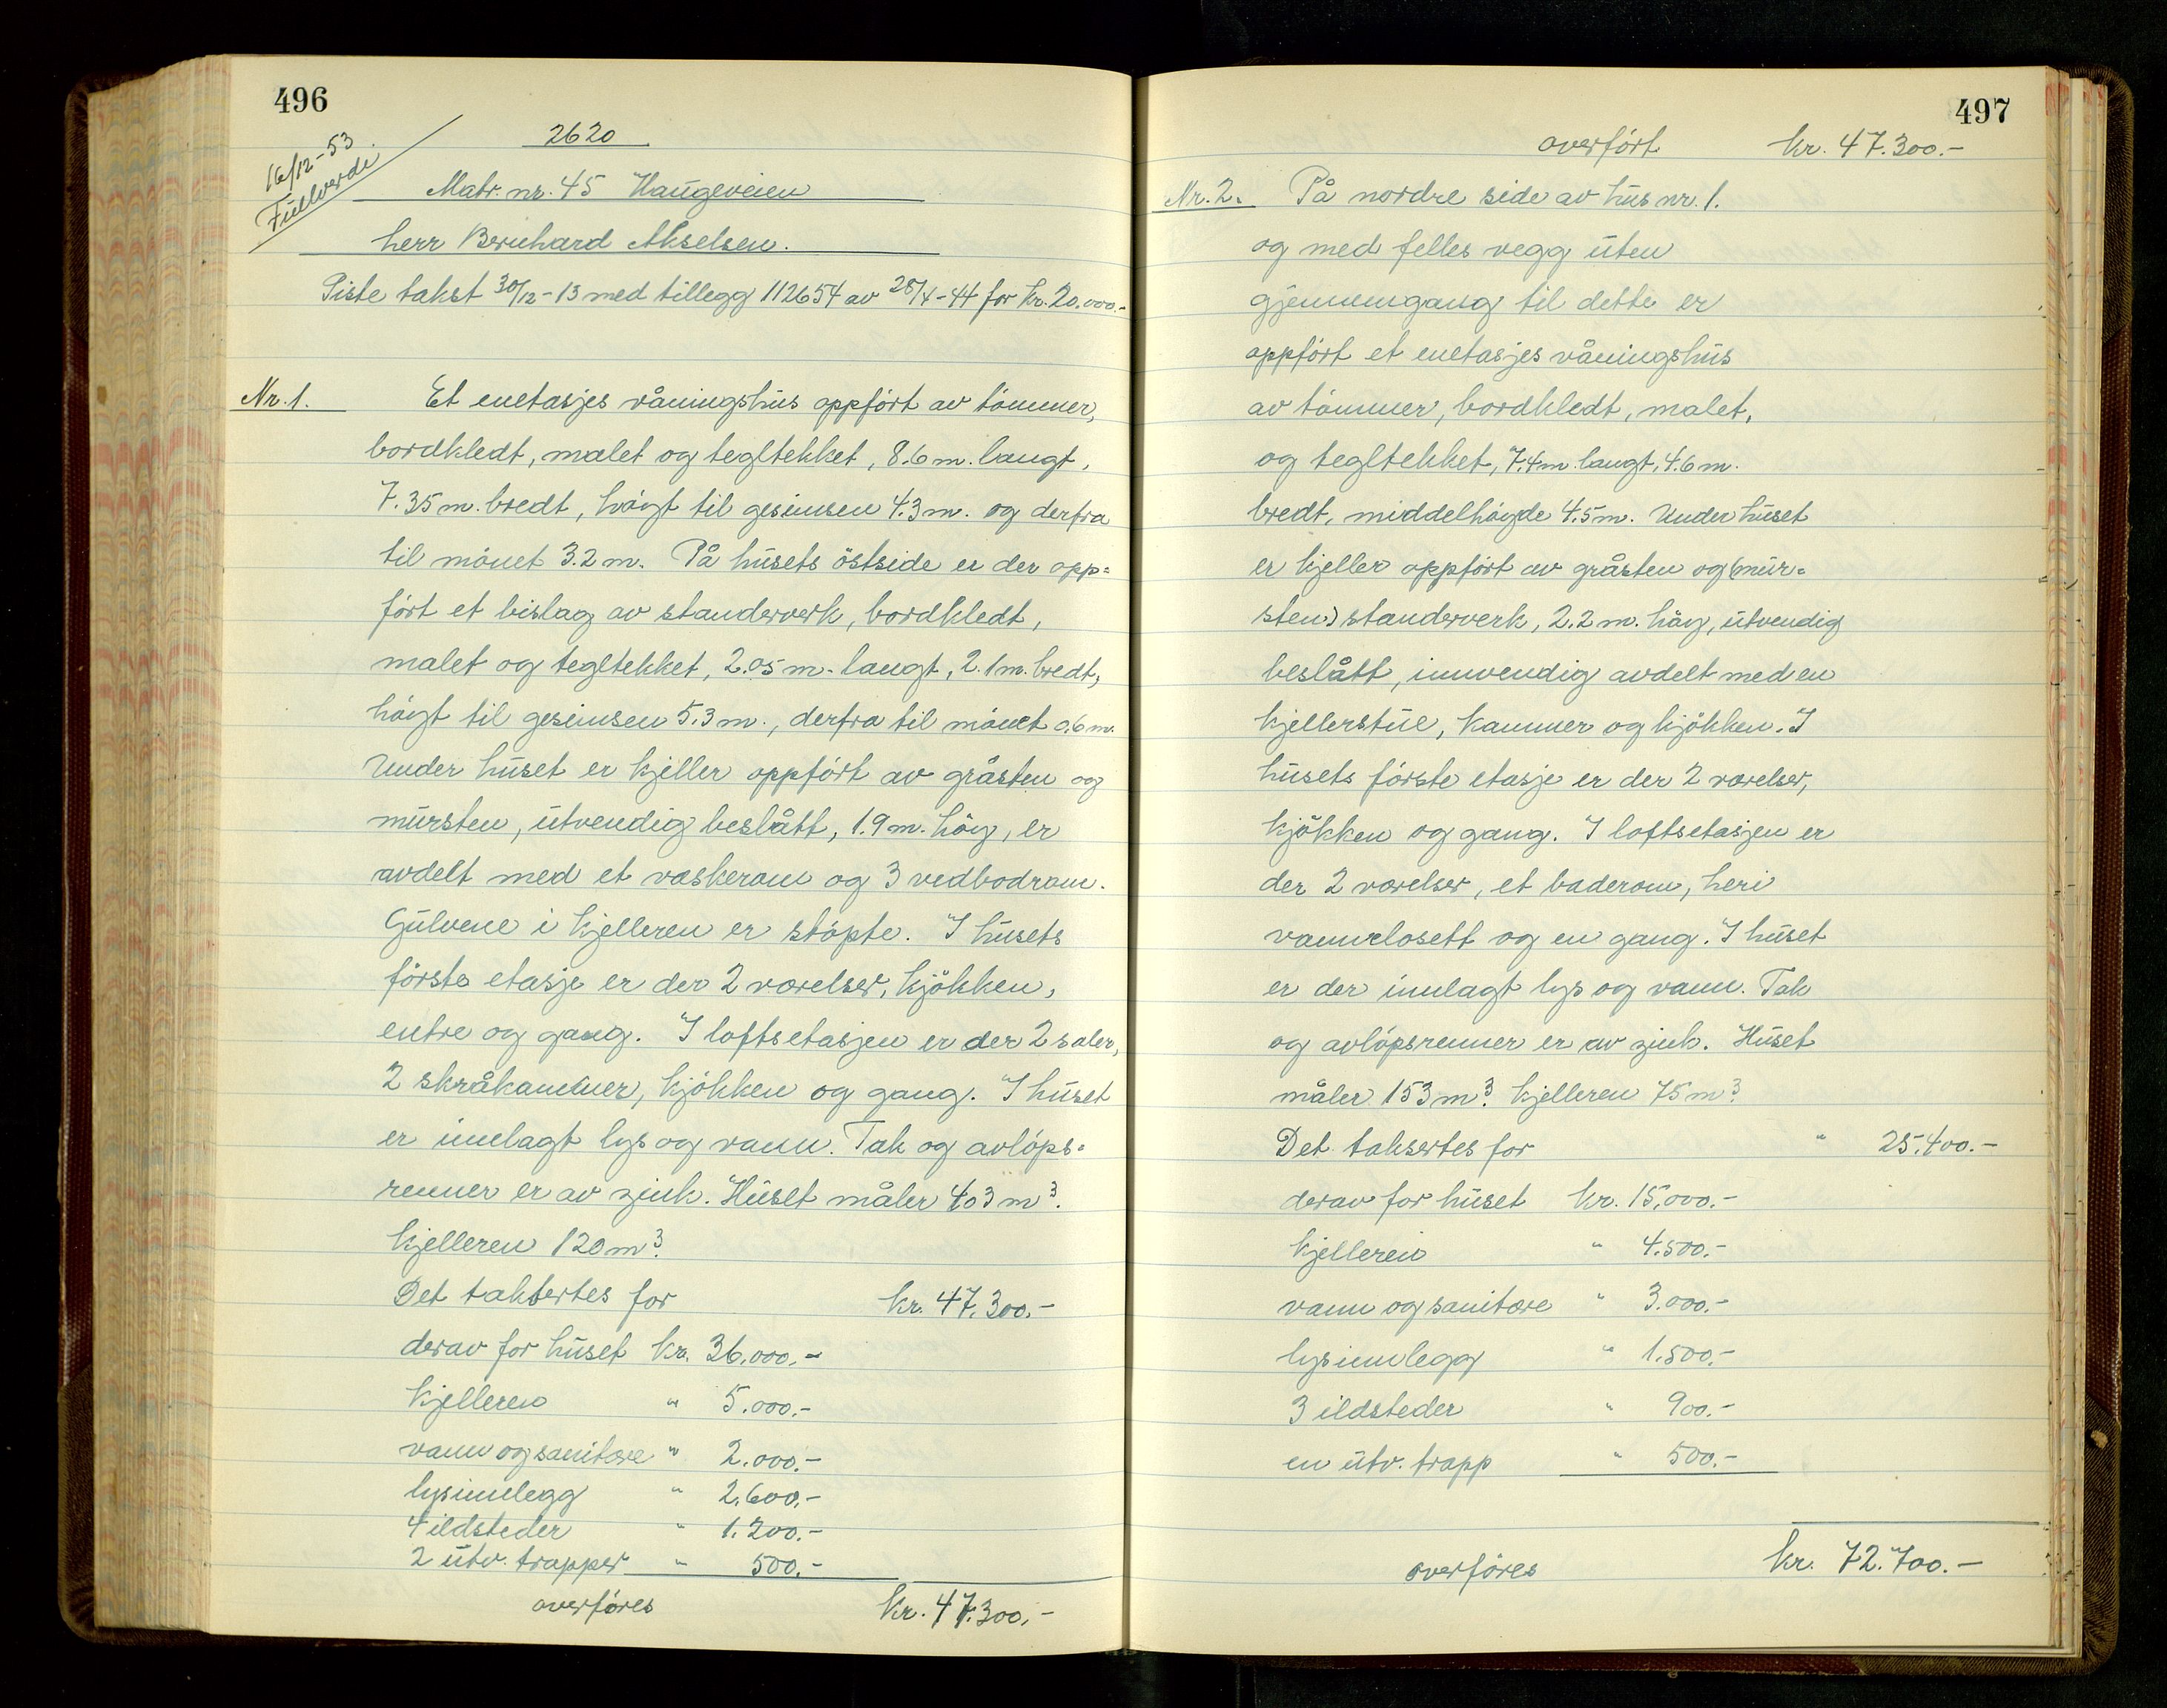 496
16/12-53
Fullverdi
2620
Matr. nr. 45 Haugeveien
herr Bernhard Akselsen.
Siste takst 30/12-13 med tillegg 112654 av 28/4-44 for kr. 20.000.-
Nr. 1. Et enetasjes våningshus oppfört av tömmer,
bordkledt, malet og tegltekket, 8.6 m. langt,
7.35 m. bredt, höigt til gesimsen 4.3 m. og derfra
til mönet 3.2 m. På husets östside er der opp=
fört et bislag av standerverk, bordkledt,
malet og tegltekket, 2.05 m. langt, 2.1 m. bredt,
höigt til gesimsen 5.3 m., derfra til mönet 0.6 m.
Under huset er kjeller oppfört av gråsten og
mursten, utvendig beslått, 1.9 m. höy, er
avdelt med et vaskerom og 3 vedbodrom.
Gulvene i kjelleren er stöpte. I husets
förste etasje er der 2 værelser, kjökken,
entre og gang. I loftsetasjen er der 2 saler,
2 skråkammer, kjökken og gang. I huset
er innlagt lys og vann. Tak og avlöps=
renner er av zink. Huset måler 403 m³.
kjelleren 120 m³.
Det taksertes for kr. 47.300.-
derav for huset kr. 36.000.-
kjelleren " 5.000.-
vann og sanitære " 2.000.-
lysinnlegg " 2.600.-
4 ildsteder " 1.200.-
2 utv. trapper " 500.-
overföres kr. 47.300.-
497
overfört kr. 47.300.-
Nr. 2. På nordre side av hus nr. 1.
og med felles vegg uten
gjennemgang til dette er
oppfört et enetasjes våningshus
av tömmer, bordkledt, malet,
og tegltekket, 7.4 m. langt, 4.6 m.
bredt, middelhöyde 4.5 m. Under huset
er kjeller oppfört av gråsten og (mur=
sten) standerverk, 2.2 m. höy, utvendig
beslått, innvendig avdelt med en
kjellerstue, kammer og kjökken. I
husets förste etasje er der 2 værelser,
kjökken og gang. I loftsetasjen er
der 2 værelser, et baderom, heri
vannclosett og en gang. I huset
er der innlagt lys og vann. Tak
og avlöpsrenner er av zink. Huset
måler 153 m³. kjelleren 75 m³.
Det taksertes for " 25.400.-
derav for huset kr. 15.000.-
kjelleren " 4.500.-
vann og sanitære " 3.000.-
lysinnlegg " 1.500.-
3 ildsteder " 900.-
en utv. trapp " 500.-
overföres kr. 72.700.-